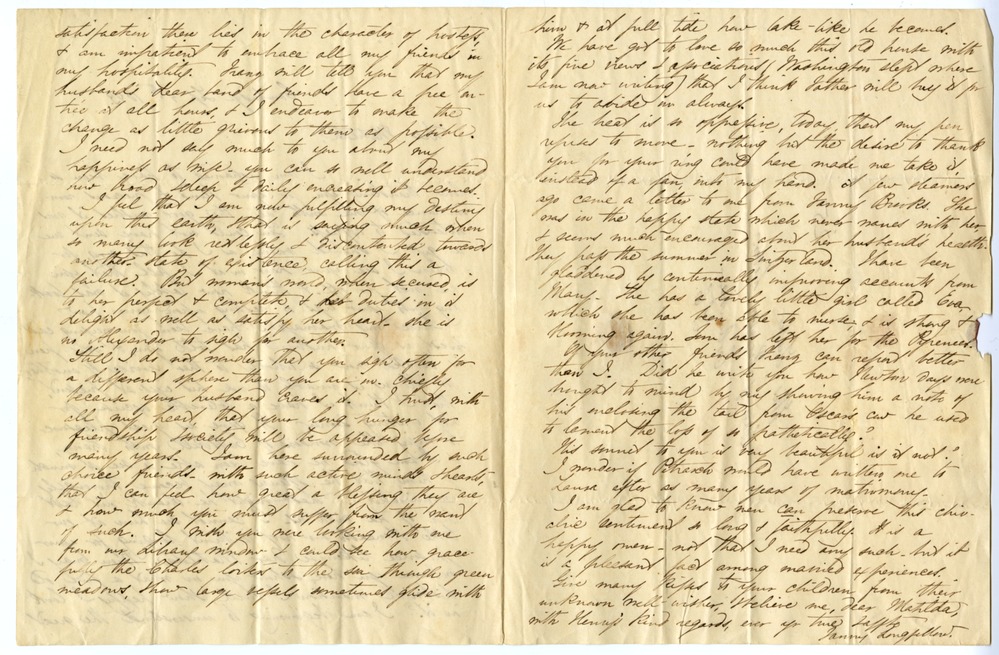 satisfaction there lies in the character of hostess,
& am impatient to embrace all my friends in
my hospitality. Franz will tell you that my
husband's dear band of friends have a free en-
trée at all hours, & I endeavor to make the
change as little grievous to them as possible.
I need not say much to you about my
happiness as wife. you can so well understand
how broad & deep & daily increasing it becomes.
I feel that I am now fulfilling my destiny
upon this earth, & that is saying much when
so many look restlessly & discontented towards
another state of existence, calling this a
failure. But woman's world, when secured, is
to her perfect & complete, & her duties in it
delight as well as satisfy her heart. she is
no Alexander to sigh for another.
Still I do not wonder that you sigh often for
a different sphere than you are in. chiefly
because your husband craves it. I trust, with
all my heart, that your long hunger for
friendship & society will be appeased before
many years. I am here surrounded by such
choice friends, with such active minds & hearts,
that I can feel how great a blessing they are
& how much you must suffer from the want
of such. I wish you were looking with me
from our library window & could see how grace-
fully the Charles loiters to the sea through green
meadows, & how large vessels sometimes glide with
him & at full tide how lake-like he becomes.
We have got to love so much this old house with
its fine views & associations, (Washington slept where
I am now writing) that I think Father will buy it for
us to abide in always.
The heat is so oppressive, today, that my pen
refuses to move. nothing but the desire to thank
you for your ring could have made me take it,
instead of a fan, into my hand. A few steamers
ago came a letter to me from Fanny Brooks. She
was in the happy state which never wanes with her
& seems much encouraged about her husband's health.
They pass the summer in Switzerland. I have been
gladdened by continually improving accounts from
Mary. She has a lovely little girl called Eva,
which she has been able to nurse, & is strong &
blooming again. Jem has left her for the Pyrenees.
Of your other friends Franz can report better
than I. Did he write you how Newton days were
brought to mind by my showing him a note of
his enclosing the tail from Oscar's cow he used
to lament the loss of so pathetically?
His sonnet to you is very beautiful is it not?
I wonder if Petrarch would have written one to
Laura after as many years of matrimony.
I am glad to know men can preserve this chiv-
alric sentiment so long & faithfully. It is a
happy omen. not that I need any such. but it
is a pleasant fact among married experiences.
Give many kisses to your children from their
unknown well-wisher, & believe me, dear Matilda,
with Henry's kind regards, ever yr true
Fanny Longfellow.